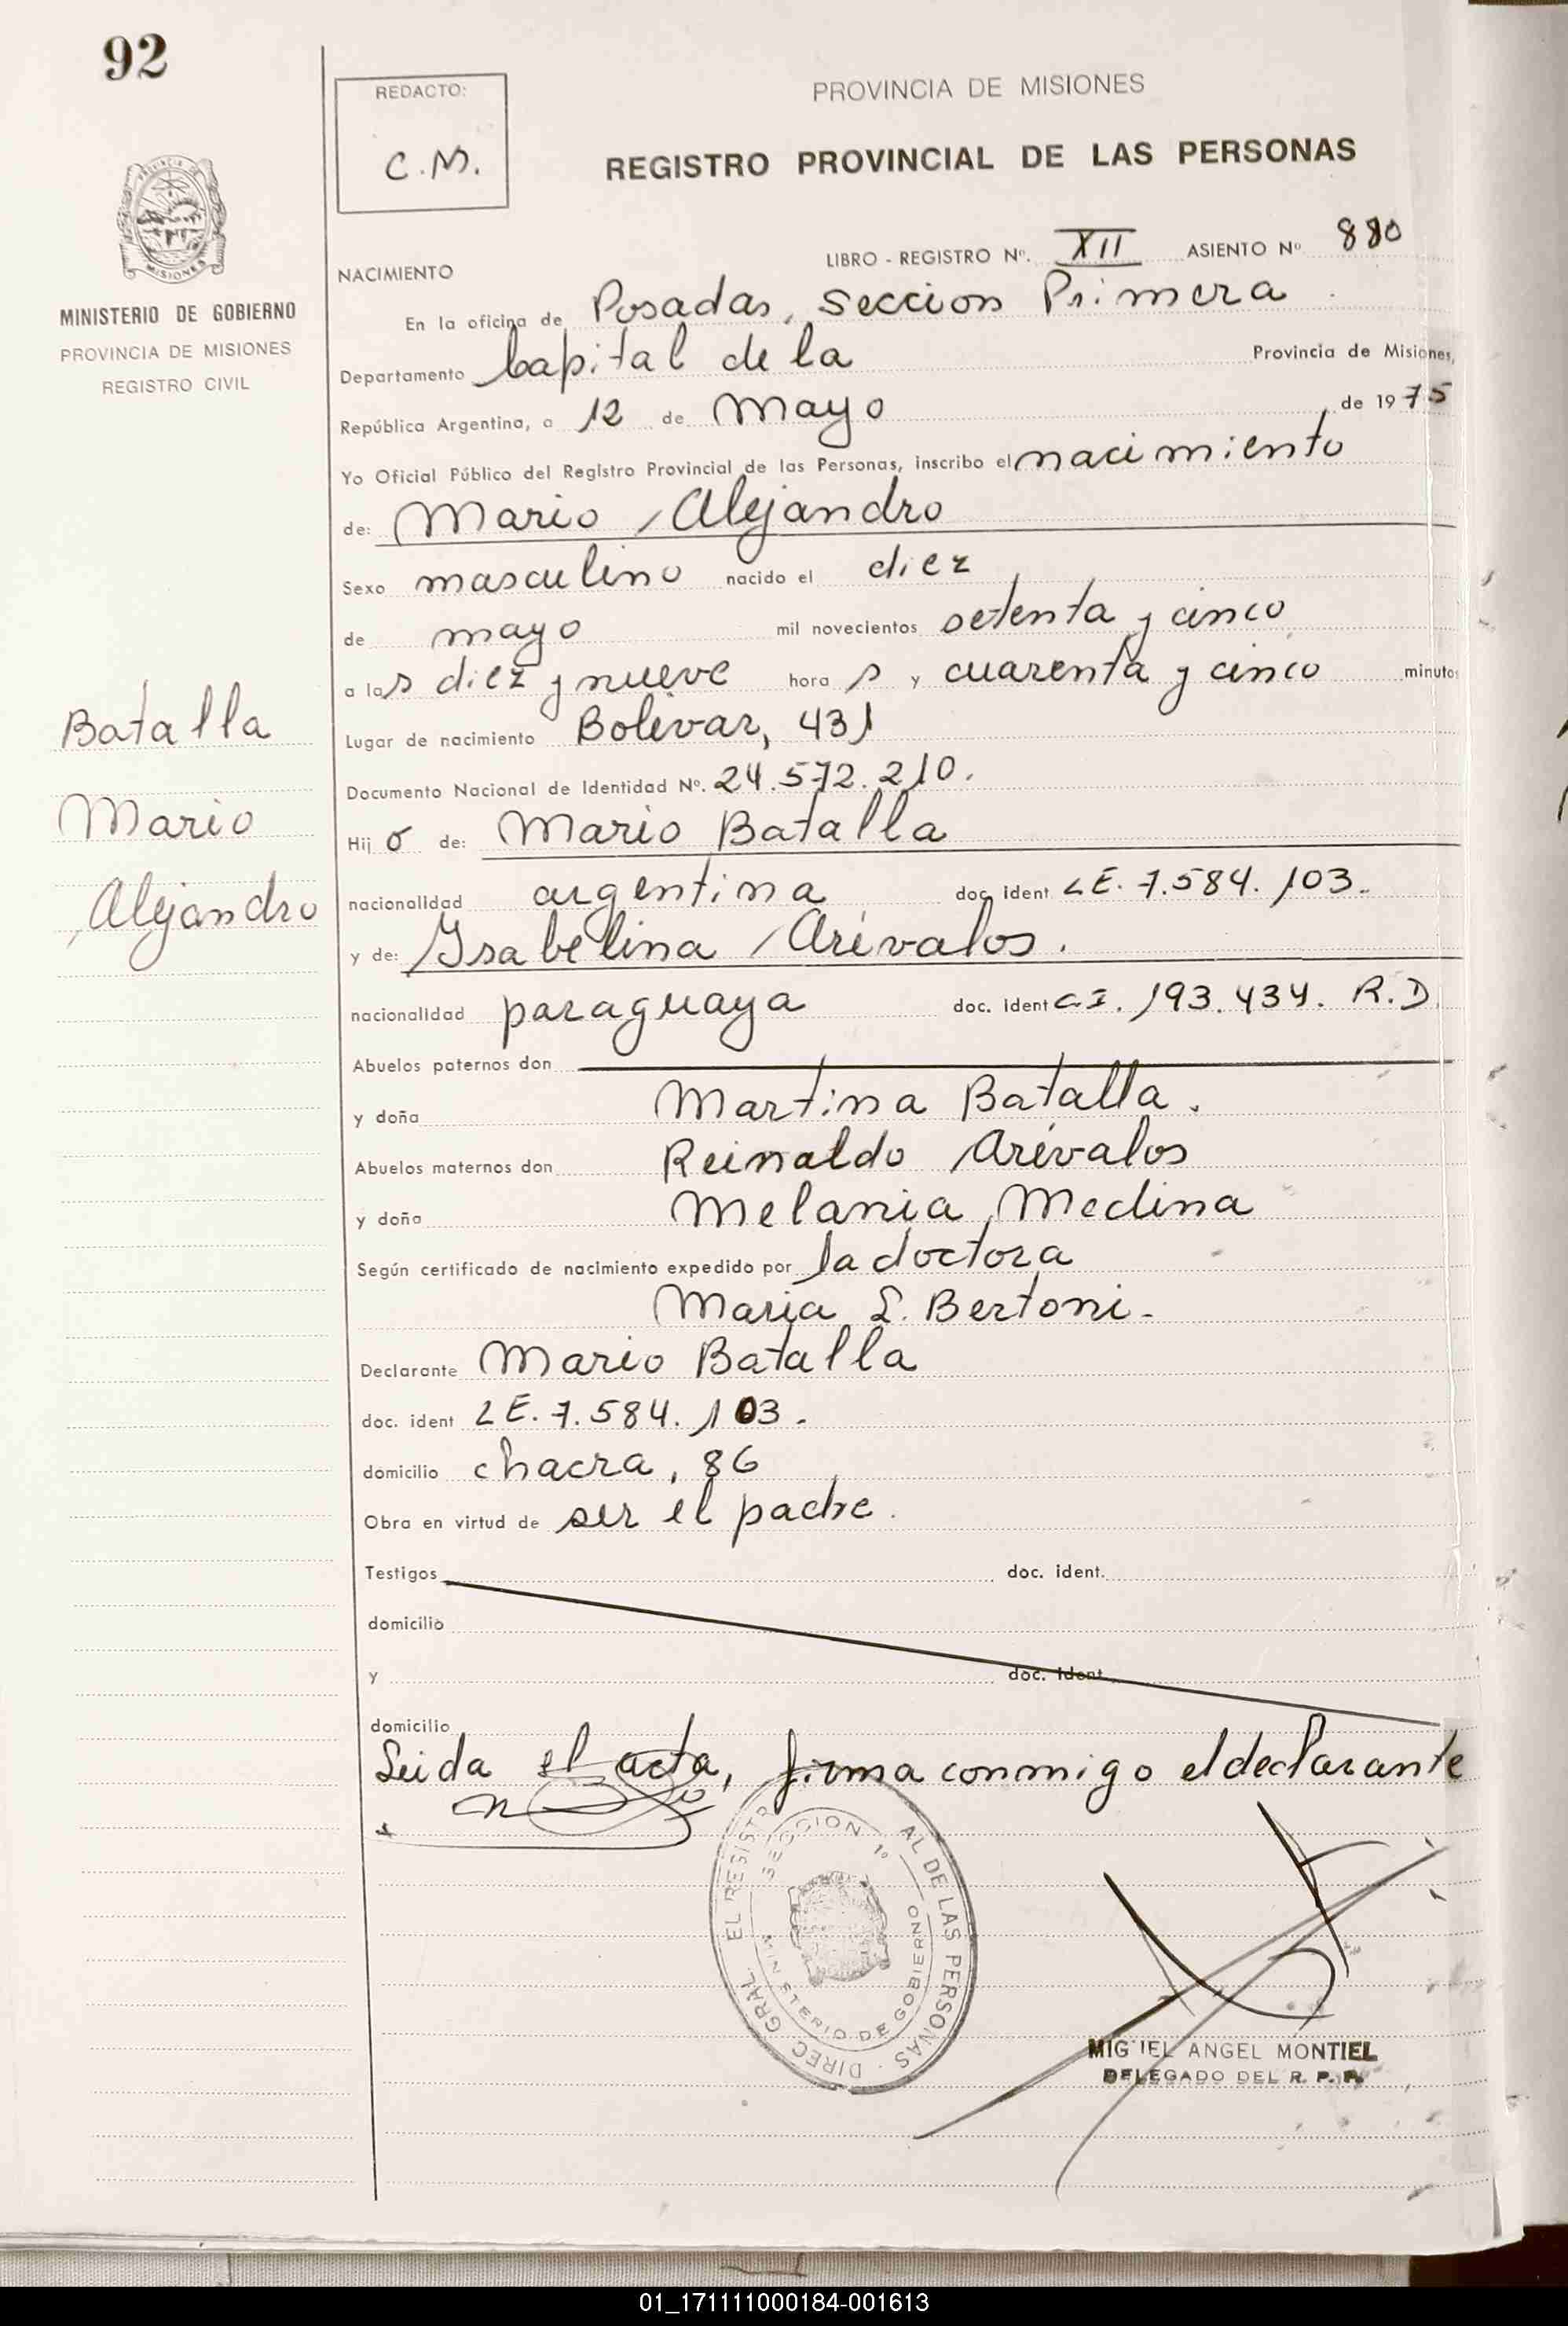 92
REDACTO:
C.M.
PROVINCIA DE MISIONES
REGISTRO PROVINCIAL DE LAS PERSONAS
MISIONES
MINISTERIO DE GOBIERNO
PROVINCIA DE MISIONES
REGISTRO CIVIL
LIBRO - REGISTRO Nº. XII ASIENTO Nº 880
NACIMIENTO
En la oficina de Posadas, Seccion Primera
Departamento Capital de la Provincia de Misiones,
República Argentina, a 12 de Mayo de 1975
Yo Oficial Público del Registro Provincial de las Personas, inscribo el nacimiento
de: Mario Alejandro
Sexo masculino nacido el diez
de mayo mil novecientos setenta y cinco
a las diez y nueve horas y cuarenta y cinco minutos
Lugar de nacimiento Bolivar, 431
Documento Nacional de Identidad Nº. 24.572.210.
Hijo de: Mario Batalla
nacionalidad argentina doc. ident LE. 7.584.103.
y de: Ysabelina Arévalos.
nacionalidad paraguaya doc. ident C.I. 193.434. R.D.
Abuelos paternos don
y doña Martina Batalla.
Abuelos maternos don Reinaldo Arévalos
y doña Melania Medina
Según certificado de nacimiento expedido por la doctora
Maria L. Bertoni.
Declarante Mario Batalla
doc. ident LE. 7.584.103.
domicilio chacra, 86
Obra en virtud de ser el padre.
Testigos doc. ident.
domicilio
y doc. ident.
domicilio
Leida el acta, firma conmigo el declarante
Batalla
Mario
Alejandro
DIREC GRAL. EL REGISTR AL DE LAS PERSONAS
SECCION 1º
MINISTERIO DE GOBIERNO
MIGUEL ANGEL MONTIEL
DELEGADO DEL R. P. P.
01_171111000184-001613